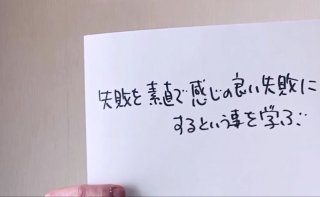 失敗を素直で感じの良い失敗に
するという事を学ぶ…